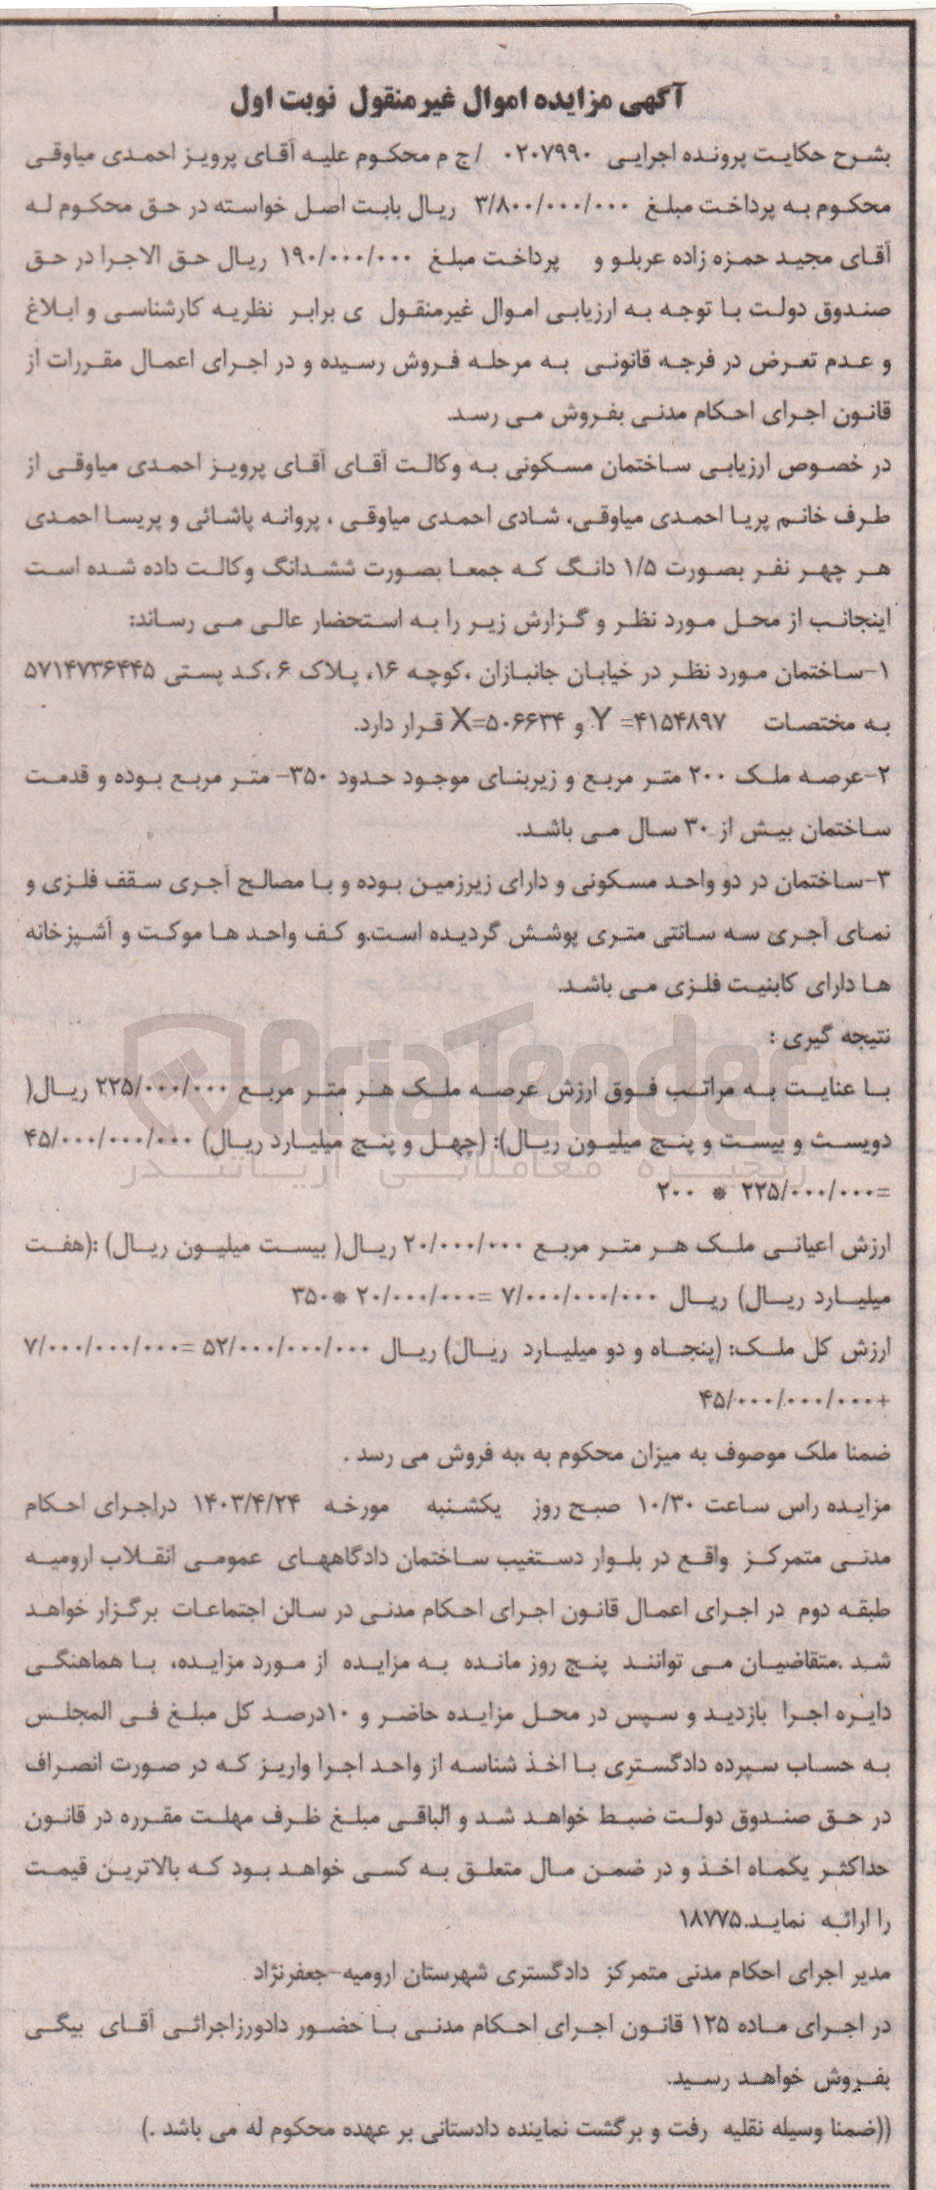 آگهی مزایده اموال غیرمنقول نوبت اول
بشرح حکایت پرونده اجرایی ۰۲۰۷۹۹۰ /ج م محکوم علیه آقای پرویز احمدی میاوقی
محکوم به پرداخت مبلغ ۳/۸۰۰/۰۰۰/۰۰۰ ریال بابت اصل خواسته در حق محکوم له
آقای مجید حمزه زاده عربلو و پرداخت مبلغ ۱۹۰/۰۰۰/۰۰۰ ریال حق الاجرا در حق
صندوق دولت با توجه به ارزیابی اموال غیرمنقول ی برابر نظریه کارشناسی و ابلاغ
و عدم تعرض در فرجه قانونی به مرحله فروش رسیده و در اجرای اعمال مقررات از
قانون اجرای احکام مدنی بفروش می رسد.
در خصوص ارزیابی ساختمان مسکونی به وکالت آقای آقای پرویز احمدی میاوقی از
طرف خانم پریا احمدی میاوقی، شادی احمدی میاوقی ، پروانه پاشائی و پریسا احمدی
هر چهر نفر بصورت ۱/۵ دانگ که جمعا بصورت ششدانگ وکالت داده شده است
اینجانب از محل مورد نظر و گزارش زیر را به استحضار عالی می رساند:
۱-ساختمان مورد نظر در خیابان جانبازان ،کوچه ۱۶، پلاک ۶ ،کد پستی ۵۷۱۴۷۳۶۴۴۵
به مختصات Y =۴۱۵۴۸۹۷ و X=۵۰۶۶۳۴ قرار دارد.
۲-عرصه ملک ۲۰۰ متر مربع و زیربنای موجود حدود ۳۵۰- متر مربع بوده و قدمت
ساختمان بیش از ۳۰ سال می باشد.
۳-ساختمان در دو واحد مسکونی و دارای زیرزمین بوده و با مصالح آجری سقف فلزی و
نمای آجری سه سانتی متری پوشش گردیده است.و کف واحد ها موکت و آشپزخانه
ها دارای کابنیت فلزی می باشد.
نتیجه گیری :
با عنایت به مراتب فوق ارزش عرصه ملک هر متر مربع ۲۲۵/۰۰۰/۰۰۰ ریال(
دویست و بیست و پنج میلیون ریال): (چهل و پنج میلیارد ریال) ۴۵/۰۰۰/۰۰۰/۰۰۰
=۲۲۵/۰۰۰/۰۰۰ * ۲۰۰
ارزش اعیانی ملک هر متر مربع ۲۰/۰۰۰/۰۰۰ ریال( بیست میلیون ریال) :(هفت
میلیارد ریال) ریال ۷/۰۰۰/۰۰۰/۰۰۰ =۲۰/۰۰۰/۰۰۰ *۳۵۰
ارزش کل ملک: (پنجاه و دو میلیارد ریال) ریال ۵۲/۰۰۰/۰۰۰/۰۰۰ =۷/۰۰۰/۰۰۰/۰۰۰
+۴۵/۰۰۰/۰۰۰/۰۰۰
ضمنا ملک موصوف به میزان محکوم به ،به فروش می رسد .
مزایده راس ساعت ۱۰/۳۰ صبح روز یکشنبه مورخه ۱۴۰۳/۴/۲۴ دراجرای احکام
مدنی متمرکز واقع در بلوار دستغیب ساختمان دادگاههای عمومی انقلاب ارومیه
طبقه دوم در اجرای اعمال قانون اجرای احکام مدنی در سالن اجتماعات برگزار خواهد
شد .متقاضیان می توانند پنج روز مانده به مزایده از مورد مزایده، با هماهنگی
دایره اجرا بازدید و سپس در محل مزایده حاضر و ۱۰درصد کل مبلغ فی المجلس
به حساب سپرده دادگستری با اخذ شناسه از واحد اجرا واریز که در صورت انصراف
در حق صندوق دولت ضبط خواهد شد و الباقی مبلغ ظرف مهلت مقرره در قانون
حداکثر یکماه اخذ و در ضمن مال متعلق به کسی خواهد بود که بالاترین قیمت
را ارائه نماید.۱۸۷۷۵
مدیر اجرای احکام مدنی متمرکز دادگستری شهرستان ارومیه-جعفرنژاد
در اجرای ماده ۱۲۵ قانون اجرای احکام مدنی با حضور دادورزاجرائی آقای بیگی
بفروش خواهد رسید.
((ضمنا وسیله نقلیه رفت و برگشت نماینده دادستانی بر عهده محکوم له می باشد .)
AriaTender
زنجیره معاملاتی آریاتندر